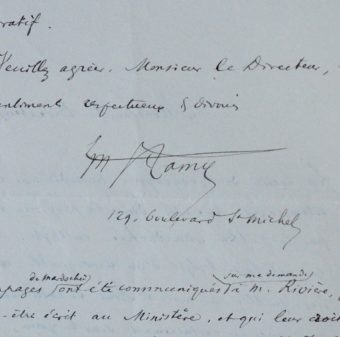 ratif.
Veuillez agréer, Monsieur le Directeur,
sentiments respectueux & dévoués
Hamy
129, boulevard St Michel
de mardochée sur ma demande
pages sont été communiqués à M. Rivière,
-être écrit au Ministère, et qui leur